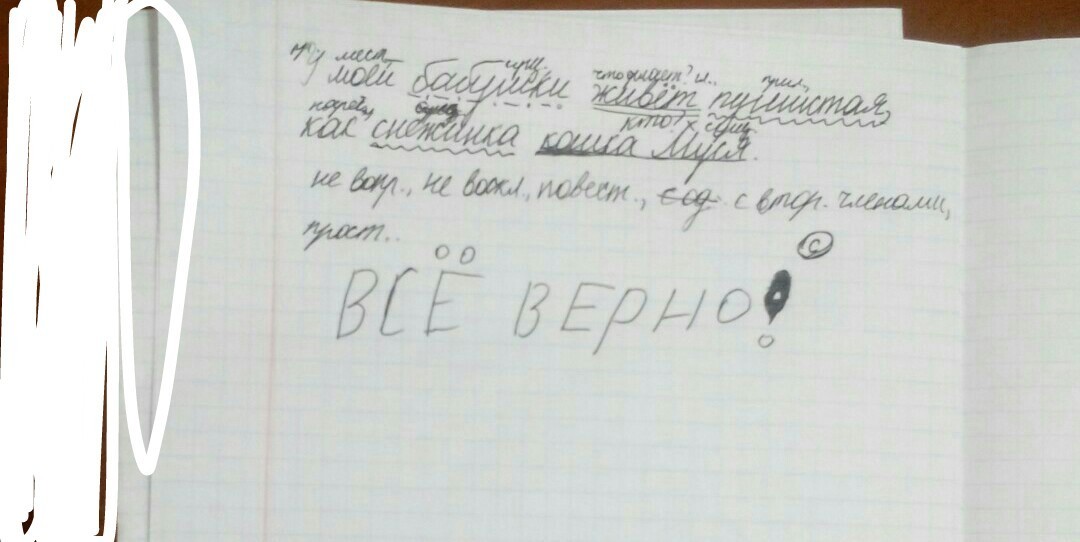 У мест. сущ. что делает? гл. прил.
моей бабушки живёт пушистая,
кто? сущ.
как снежинка кошка Муся.
не вопр., не воскл., повест., с втор. членами,
прост..
ВСЁ ВЕРНО!